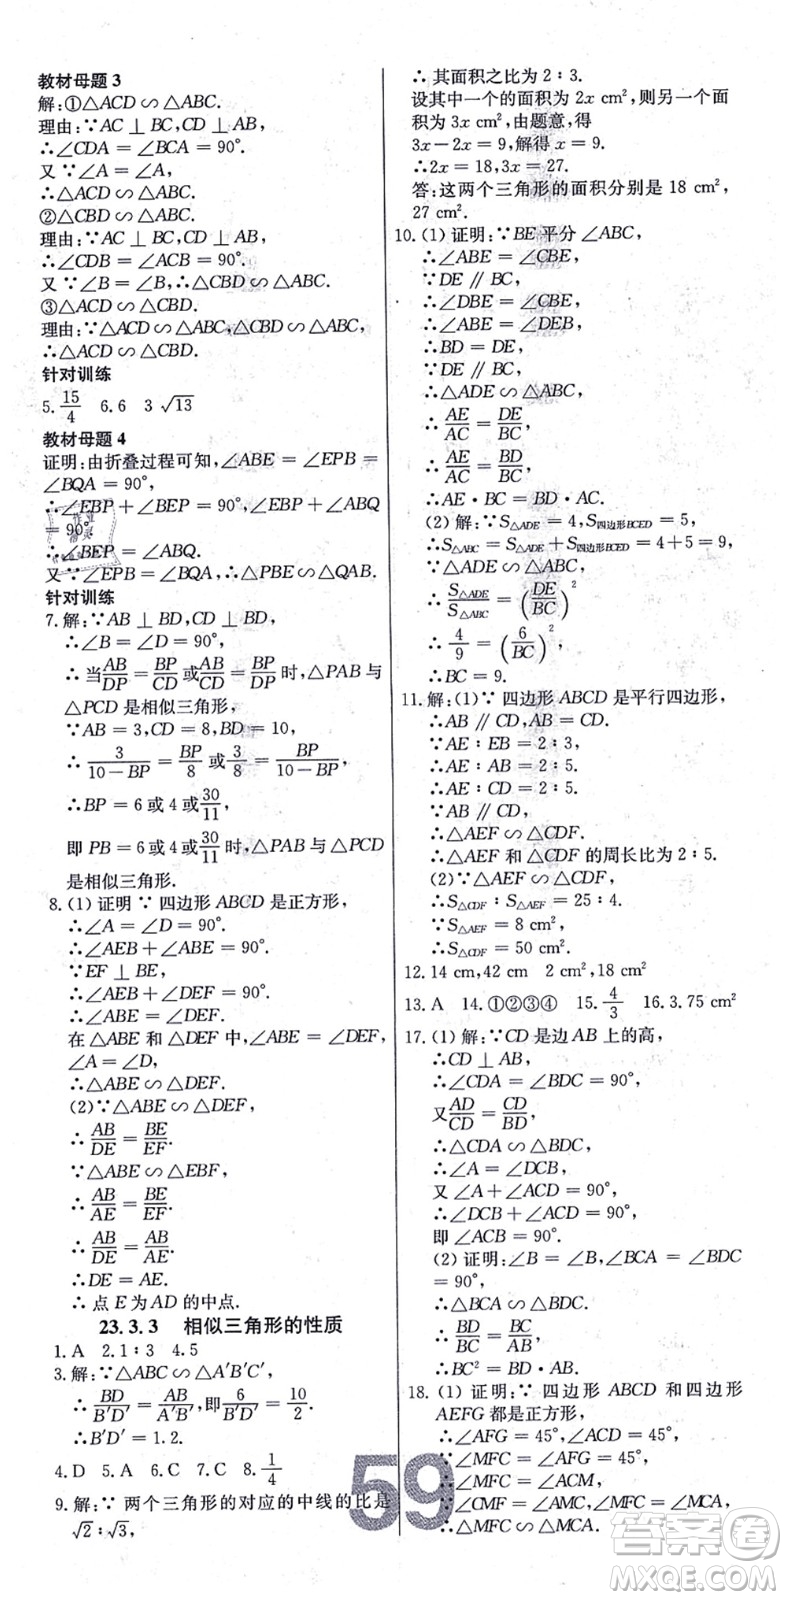 教材母题3
解:①△ACD∽△ABC.
理由:∵AC⊥BC,CD⊥AB,
∴∠CDA=∠BCA=90°.
又∵∠A=∠A,
∴△ACD∽△ABC.
②△CBD∽△ABC.
理由:∵AC⊥BC,CD⊥AB,
∴∠CDB=∠ACB=90°.
又∵∠B=∠B,∴△CBD∽△ABC.
③△ACD∽△CBD.
理由:∵△ACD∽△ABC,△CBD∽△ABC,
∴△ACD∽△CBD.
针对训练
5.15/4 6.6 3√13
教材母题4
证明:由折叠过程可知,∠ABE=∠EPB=
∠BQA=90°,
∴∠EBP+∠BEP=90°,∠EBP+∠ABQ
=90°,
∴∠BEP=∠ABQ.
又∵∠EPB=∠BQA,∴△EBP∽△BAQ.
针对训练
7.解:∵AB⊥BD,CD⊥BD,
∴∠B=∠D=90°,
∴当AB/DP=BP/CD或AB/CD=BP/DP时,△PAB与
△PCD是相似三角形,
∵AB=3,CD=8,BD=10,
∴3/(10-BP)=BP/8或3/8=BP/(10-BP),
∴BP=6或4或30/11,
即PB=6或4或30/11时,△PAB与△PCD
是相似三角形.
8.(1)证明∵四边形ABCD是正方形,
∴∠A=∠D=90°.
∴∠AEB+∠ABE=90°.
∵EF⊥BE,
∴∠AEB+∠DEF=90°.
∴∠ABE=∠DEF.
在△ABE和△DEF中,∠ABE=∠DEF,
∠A=∠D,
∴△ABE∽△DEF.
(2)∵△ABE∽△DEF,
∴AB/DE=BE/EF.
∵△ABE∽△EBF,
∴AB/AE=BE/EF.
∴AB/DE=AB/AE.
∴DE=AE.
∴点E为AD的中点.
23.3.3 相似三角形的性质
1.A 2.1∶3 4.5
3.解:∵△ABC∽△A′B′C′,
∴BD/B′D′=AB/A′B′,即6/B′D′=10/2.
∴B′D′=1.2.
4.D 5.A 6.C 7.C 8.1/4
9.解:∵两个三角形的对应的中线的比是
√2∶√3,
∴其面积之比为2∶3.
设其中一个的面积为2x cm²,则另一个面
积为3x cm²,由题意,得
3x-2x=9,解得x=9.
∴2x=18,3x=27.
答:这两个三角形的面积分别是18 cm²,
27 cm².
10.(1)证明:∵BE平分∠ABC,
∴∠ABE=∠CBE,
∵DE∥BC,
∴∠DBE=∠CBE,
∴∠ABE=∠DEB,
∴BD=DE,
∵DE∥BC,
∴△ADE∽△ABC,
∴AE/AC=DE/BC,
∴AE/AC=BD/BC,
∴AE·BC=BD·AC.
(2)解:∵S△ADE=4,S四边形BCED=5,
∴S△ABC=S△ADE+S四边形BCED=4+5=9,
∵△ADE∽△ABC,
∴S△ADE/S△ABC=(DE/BC)²
∴4/9=(6/BC)²,
∴BC=9.
11.解:(1)∵四边形ABCD是平行四边形,
∴AB∥CD,AB=CD.
∵AE∶EB=2∶3,
∴AE∶AB=2∶5.
∴AE∶CD=2∶5.
∵AB∥CD,
∴△AEF∽△CDF.
∴△AEF和△CDF的周长比为2∶5.
(2)∵△AEF∽△CDF,
∴S△CDF∶S△AEF=25∶4.
∵S△AEF=8 cm²,
∴S△CDF=50 cm².
12.14 cm,42 cm 2 cm²,18 cm²
13.A 14.①②③④ 15.4/3 16.3.75 cm²
17.(1)解:∵CD是边AB上的高,
∴CD⊥AB,
∴∠CDA=∠BDC=90°,
又AD/CD=CD/BD,
∴△CDA∽△BDC,
∴∠A=∠DCB,
又∠A+∠ACD=90°,
∴∠DCB+∠ACD=90°,
即∠ACB=90°.
(2)证明:∠B=∠B,∠BCA=∠BDC
=90°,
∴△BDC∽△BCA,
∴BD/BC=BC/AB,
∴BC²=BD·AB.
18.(1)证明:∵四边形ABCD和四边形
AEFG都是正方形,
∴∠AFG=45°,∠MCA=45°.
∵∠MFC=∠AFG=45°,
∴∠MFC=∠MCA.
∵∠CMF=∠AMC,∠MFC=∠MCA,
∴△CMF∽△MCA.
59
答案圈
MXQE.COM